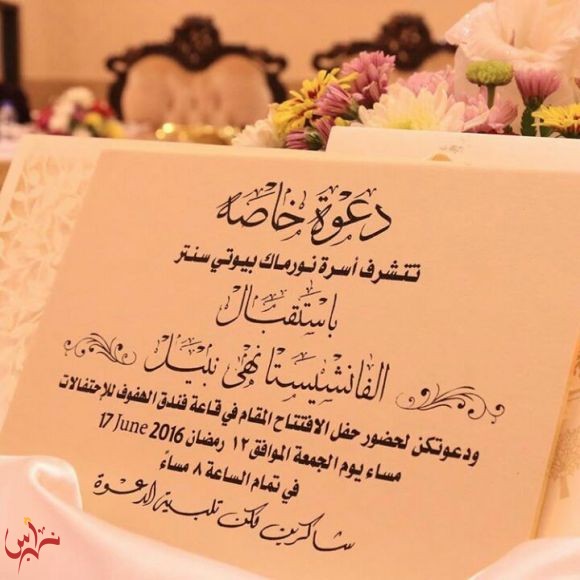 دعوة خاصه
تتشرف أسرة نورماك بيوتي سنتر
باستقبال
الفاشينيستا نهى نبيل
ودعوتكن لحضور حفل الافتتاح المقام في قاعة فندق الهفوف للإحتفالات
مساء يوم الجمعة الموافق ١٢ رمضان 17 June 2016
في تمام الساعة ٨ مساءً
شاكرين لكن تلبية الدعوة